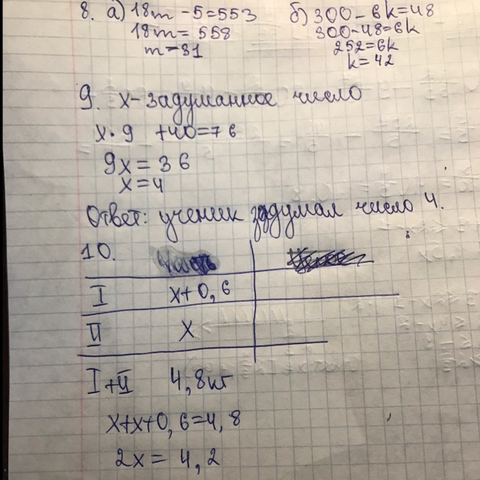 8. а) 18m - 5 = 553
18m = 558
m = 31
б) 300 - 6k = 48
300 - 48 = 6k
252 = 6k
k = 42
9. х - задуманное число
х · 9 + 40 = 76
9х = 36
х = 4
Ответ: ученик задумал число 4.
10.
I х + 0,6
II х
I + II 4,8 кг
х + х + 0,6 = 4,8
2х = 4,2